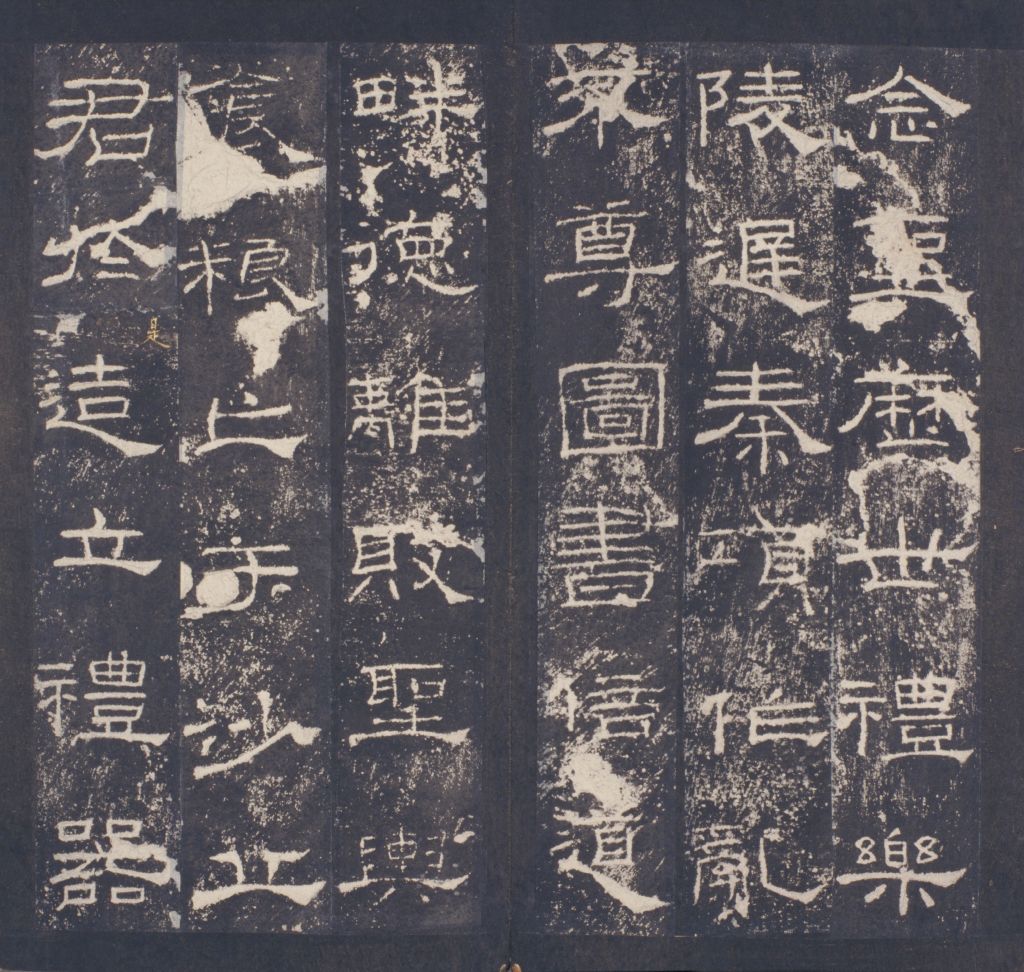 念聖歷世禮樂
陵遲秦項作亂
不尊圖書倍道
畔德離敗聖輿
食粮亡于沙丘
君於是造立禮器